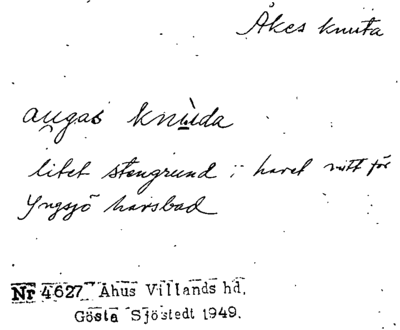 Åkes knuta
augas knùda
litet stengrund i havet mitt för
Yngsjö havsbad
Nr 4627 Åhus Villands hd.
Gösta Sjöstedt 1949.